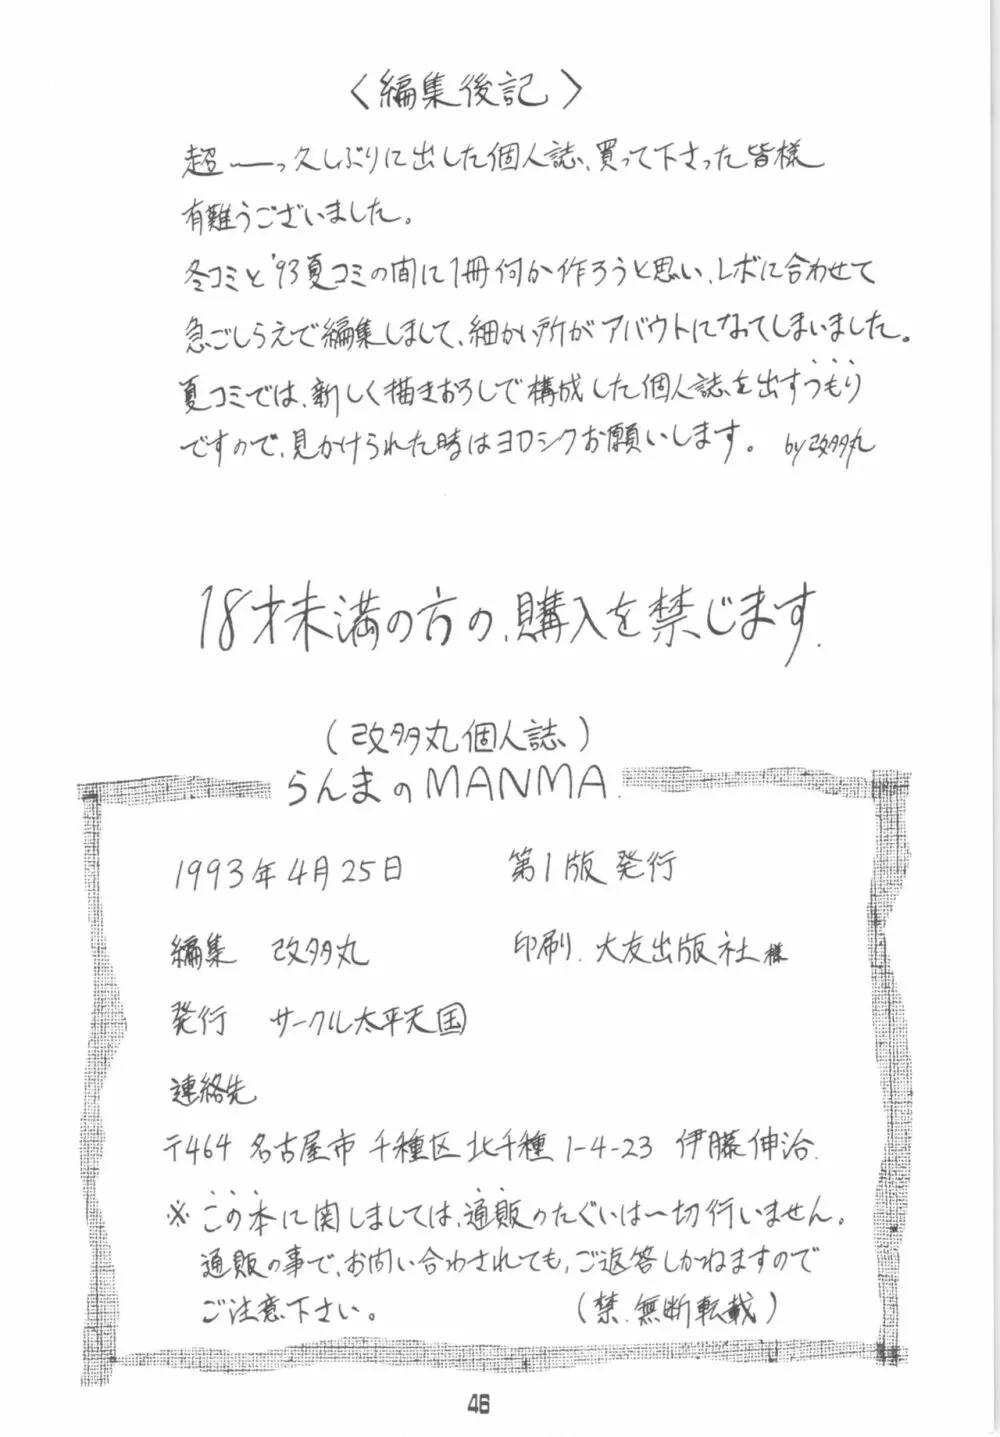 〈編集後記〉
超ーーっ久しぶりに出した個人誌、買って下さった皆様
有難うございました。
冬コミと'93夏コミの間に1冊何か作ろうと思い、レボに合わせて
急ごしらえで編集しまして、細かい所がアバウトになってしまいました。
夏コミでは、新しく描きおろしで構成した個人誌を出すつもり
ですので、見かけられた時はヨロシクお願いします。 by改多丸
18才未満の方の、購入を禁じます.
(改多丸個人誌)
らんまのMANMA.
1993年4月25日 第1版発行
編集 改多丸 印刷. 大友出版社様
発行 サークル太平天国
連絡先
〒464 名古屋市千種区北千種1-4-23 伊藤伸治.
※この本に関しましては、通販のたぐいは一切行いません。
通販の事で、お問い合わされても、ご返答しかねますので
ご注意下さい。 (禁.無断転載)
46